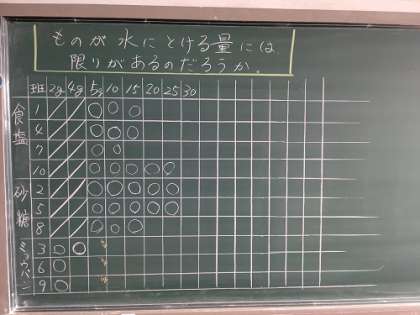 ものが水にとける量には、
限りがあるのだろうか。
班 2g 4g 5g 10 15 20 25 30
食塩
1 ○ ○ ○
4 ○ ○ ○
7 ○ ○
10 ○ ○ ○ ○ ○
砂糖
2 ○ ○ ○ ○ ○
5 ○ ○ ○ ○ ○
8 ○ ○ ○
ミョウバン
3 ○ ○
6 ○
9 ○